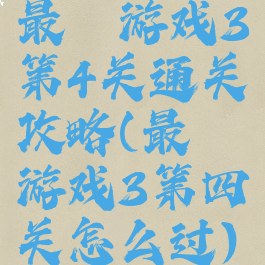 最 游戏3
第4关通关
攻略(最
游戏3第四
关怎么过)